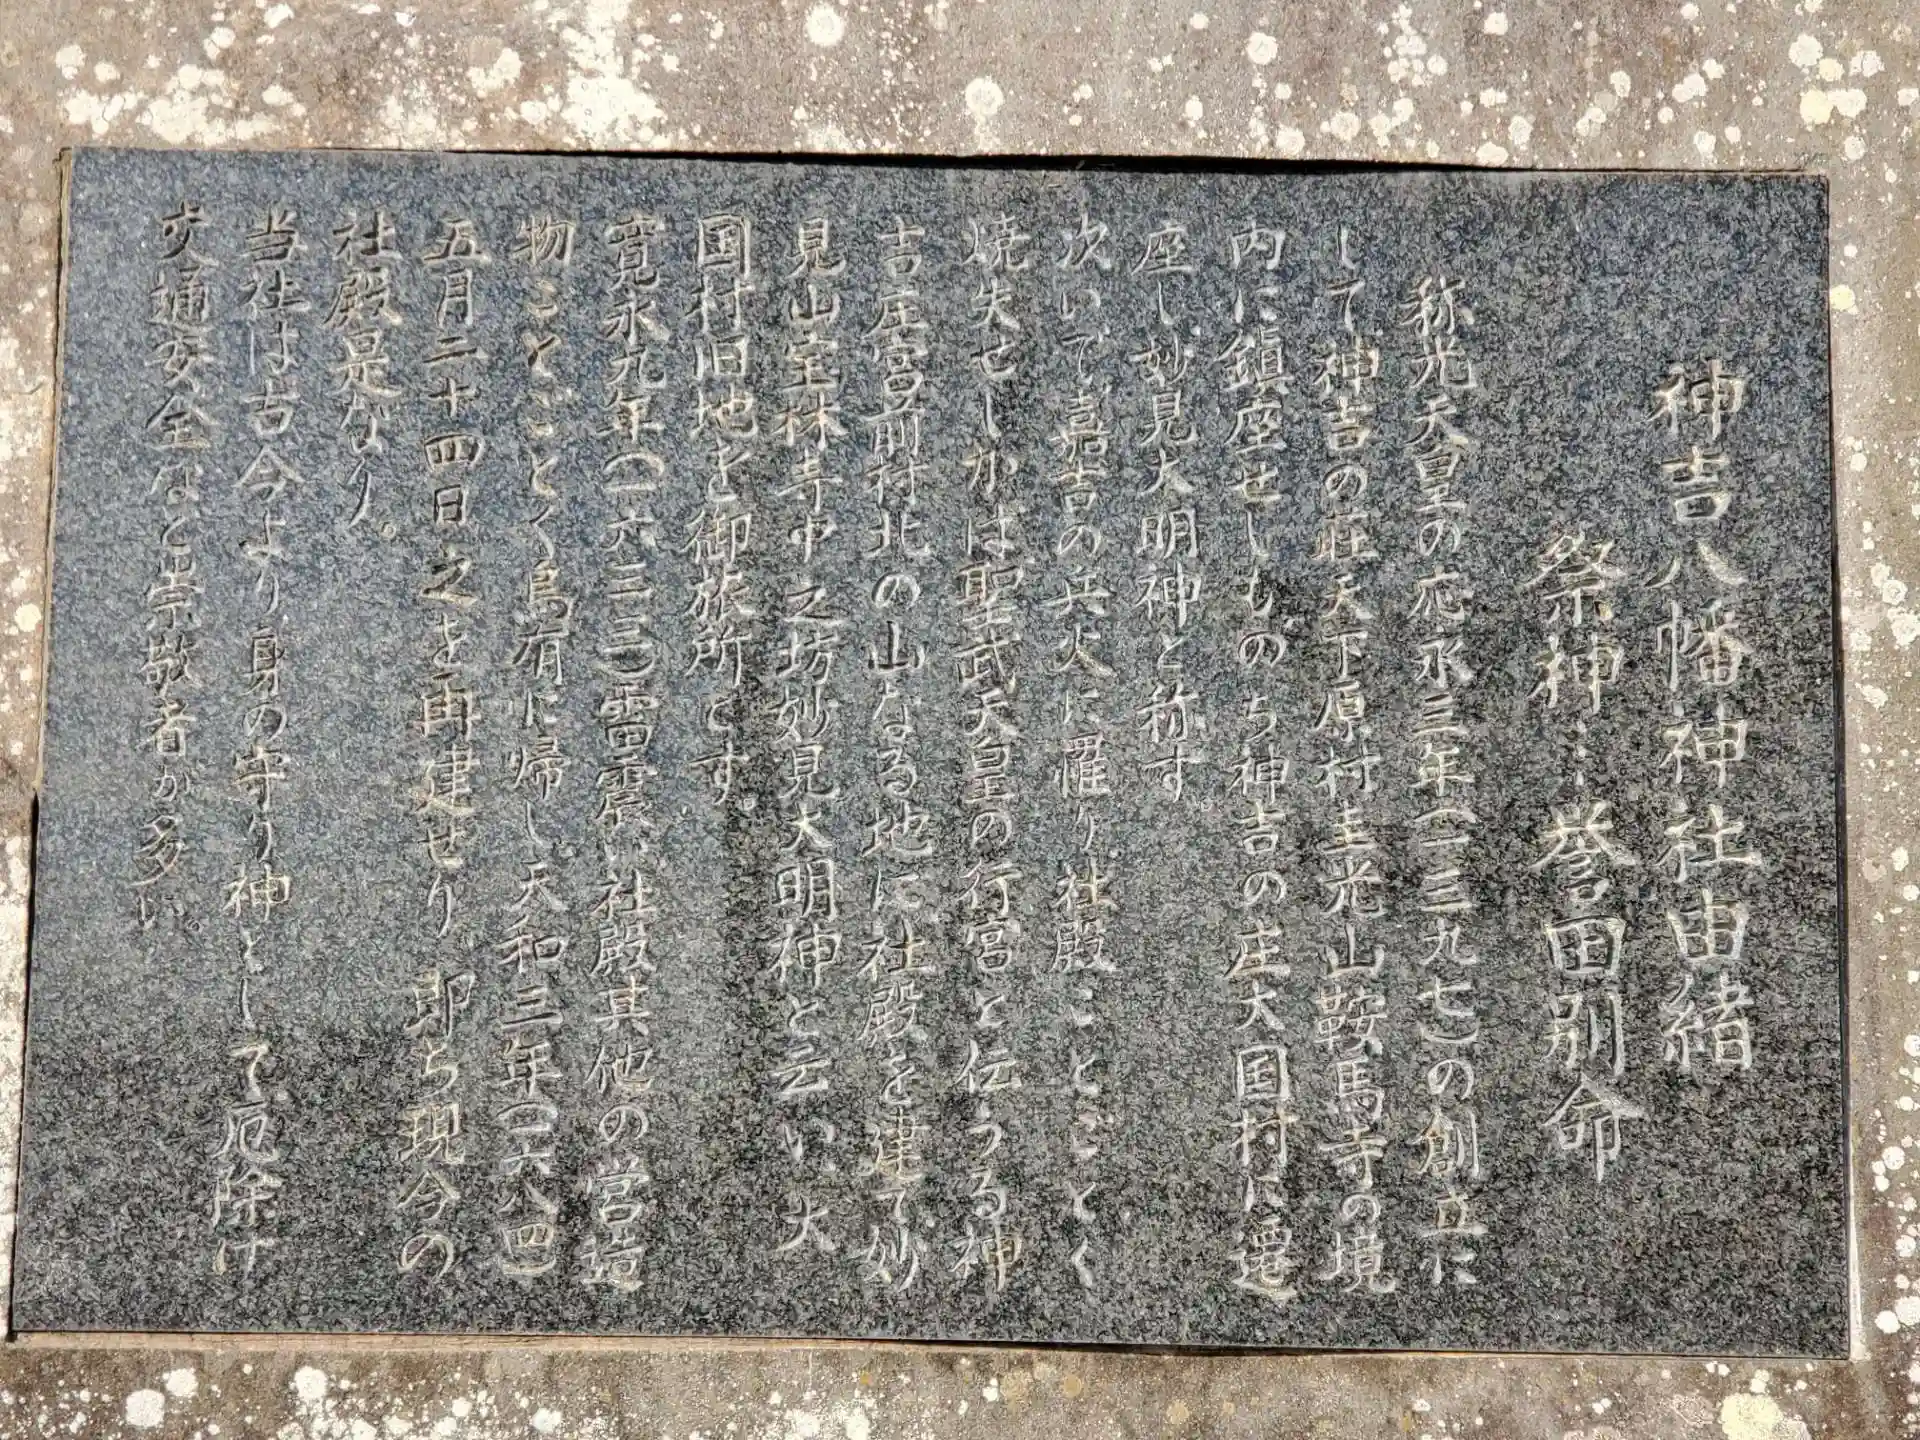 神吉八幡神社由緒
祭神…誉田別命
称光天皇の応永三年(一三九七)の創立に
して神吉の荘天下原村圭光山鞍馬寺の境
内に鎮座せしものち神吉の庄大国村に遷
座し妙見大明神と称す。
次いで嘉吉の兵火に罹り社殿ことごとく
焼失せしかは聖武天皇の行宮と伝うる神
吉庄宮前村北の山なる地に社殿を建て妙
見山宝林寺中之坊妙見大明神と云い、大
国村旧地を御旅所とす。
寛永九年(一六三二)雷震い社殿其他の営造
物ことごとく烏有に帰し天和三年(一六八四)
五月二十四日之を再建せり 即ち現今の
社殿是なり。
当社は古今より身の守り神として厄除け
交通安全など崇敬者が多い。